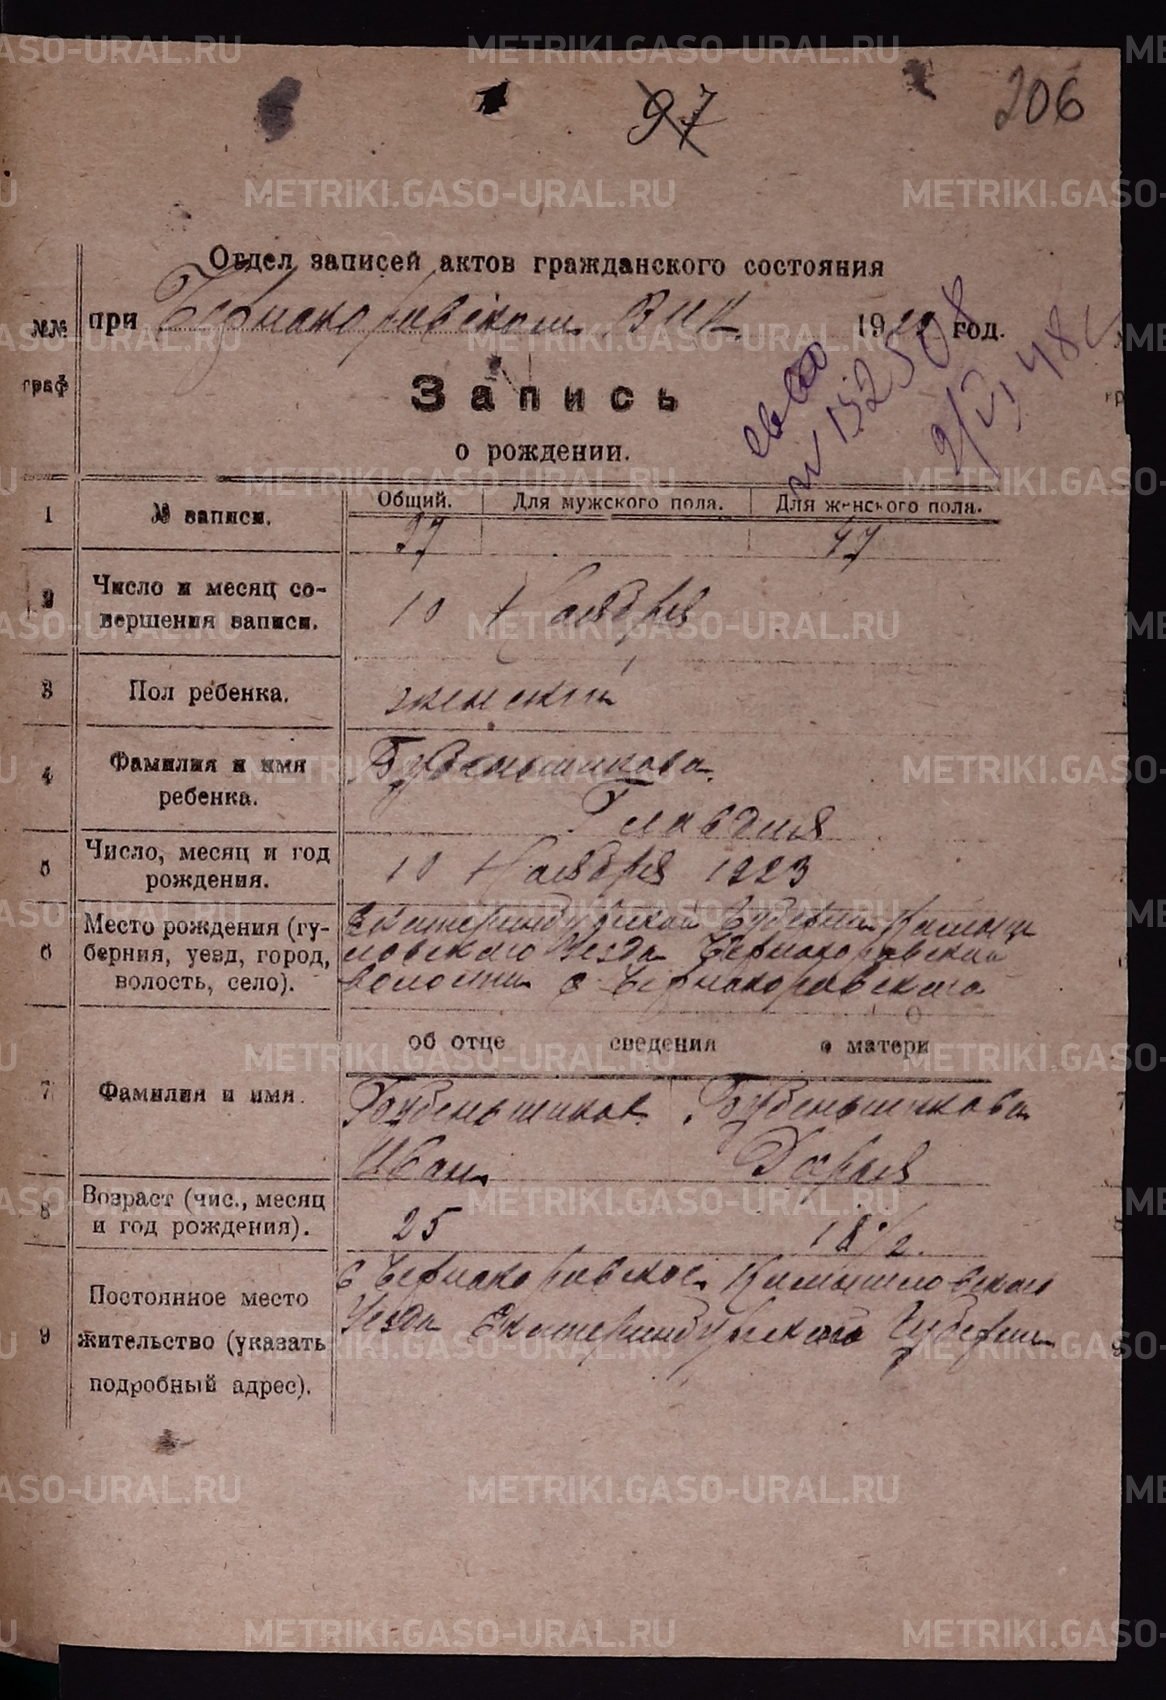 97
206
Отдел записей актов гражданского состояния
при Чернокоровском ВИК 1923 год.
№№ граф
Запись
о рождении.
№ 152508
9/VI 48
Общий. Для мужского пола. Для женского пола.
1 № записи. 97 47
2 Число и месяц со-
вершения записи. 10 Ноября
3 Пол ребенка. женский
4 Фамилия и имя
ребенка. Бубенщикова
Клавдия
5 Число, месяц и год
рождения. 10 Ноября 1923
6 Место рождения (гу-
берния, уезд, город,
волость, село).
Екатеринбургской Губернии Камыш
ловского Уезда Чернокоровской
волости с Чернокоровского
об отце сведения о матери
7 Фамилия и имя.
Бубеньшиков Бубеньшикова
Иван Дарья
8 Возраст (чис., месяц
и год рождения). 25 18 1/2
9 Постоянное место
жительство (указать
подробный адрес).
с Чернокоровское Камышловского
Уезда Екатеринбургского Губернии
METRIKI.GASO-URAL.RU